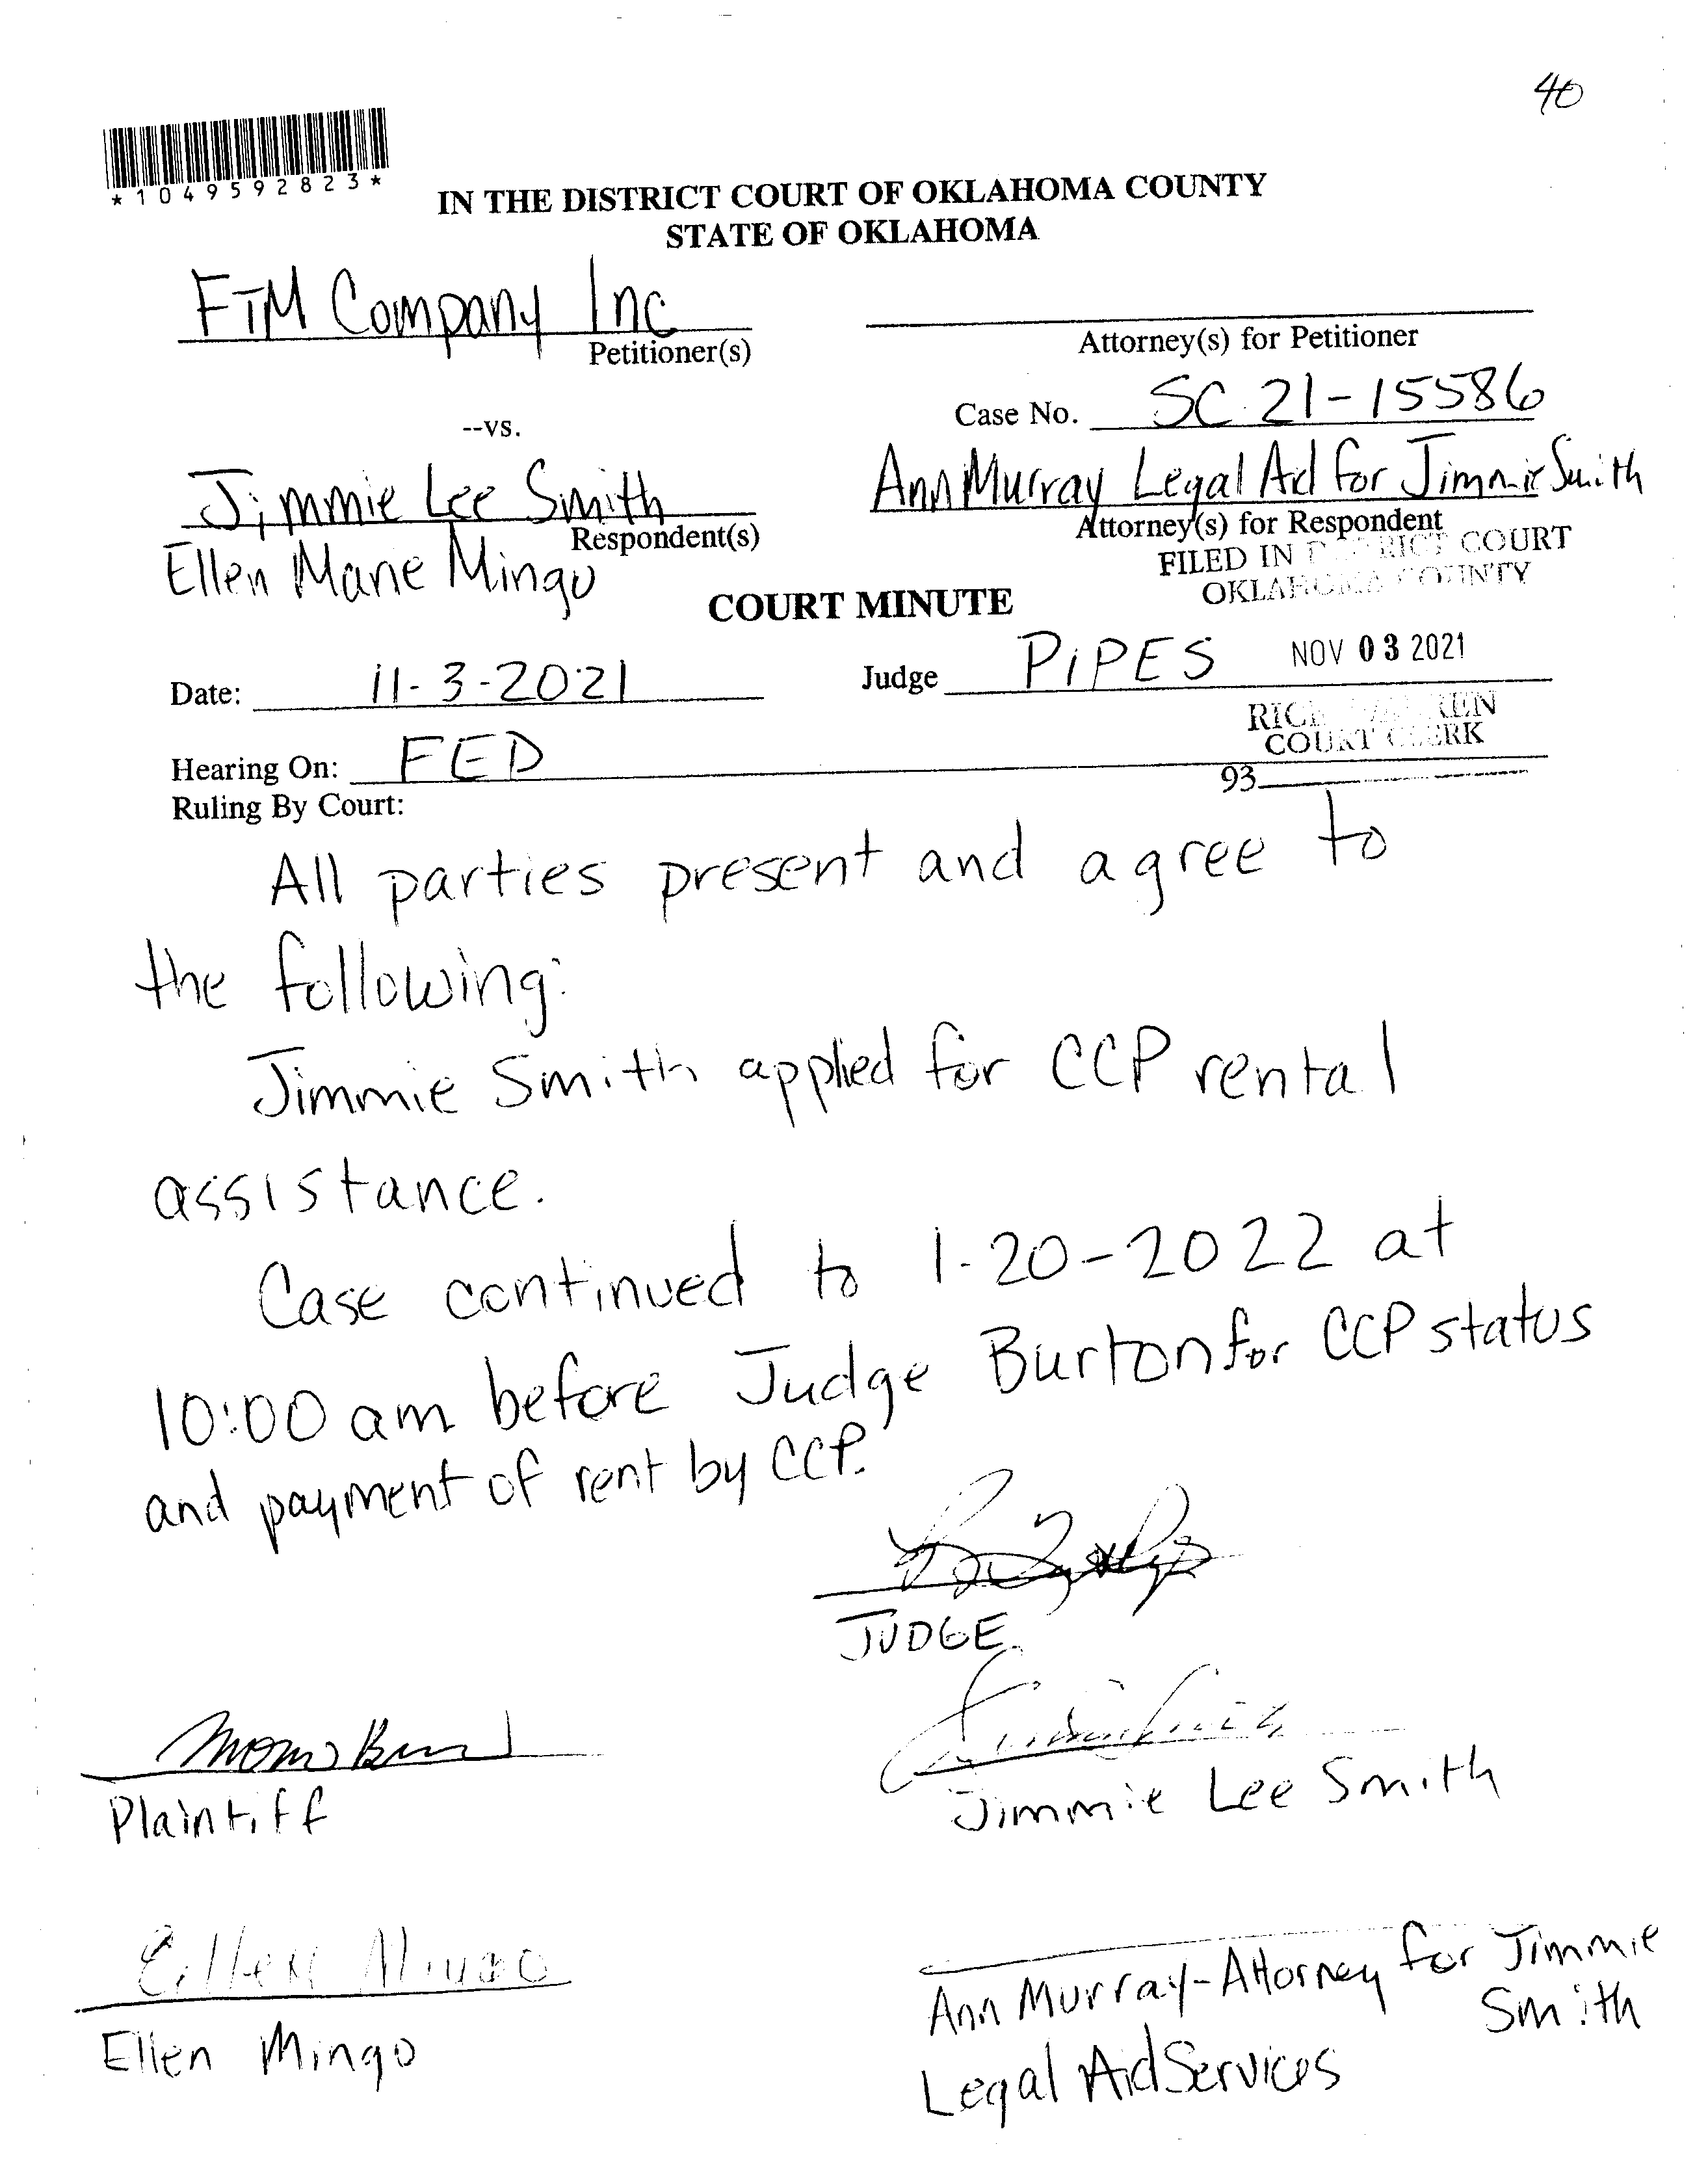 40
*1049592823*
IN THE DISTRICT COURT OF OKLAHOMA COUNTY
STATE OF OKLAHOMA
FTM Company Inc
Petitioner(s)
Attorney(s) for Petitioner
Case No. SC 21-15586
--vs.
Jimmie Lee Smith
Respondent(s)
Ellen Marie Mingo
Ann Murray Legal Aid for Jimmie Smith
Attorney(s) for Respondent
FILED IN DISTRICT COURT
OKLAHOMA COUNTY
COURT MINUTE
Date: 11-3-2021
Judge PIPES
NOV 03 2021
RICK WARREN
COURT CLERK
Hearing On: FED
93
Ruling By Court:
All parties present and agree to
the following:
Jimmie Smith applied for CCP rental
assistance.
Case continued to 1-20-2022 at
10:00 am before Judge Burton for CCP status
and payment of rent by CCP.
JUDGE
Plaintiff
Jimmie Lee Smith
Ellen Mingo
Ellen Mingo
Ann Murray-Attorney for Jimmie
Smith
Legal Aid Services